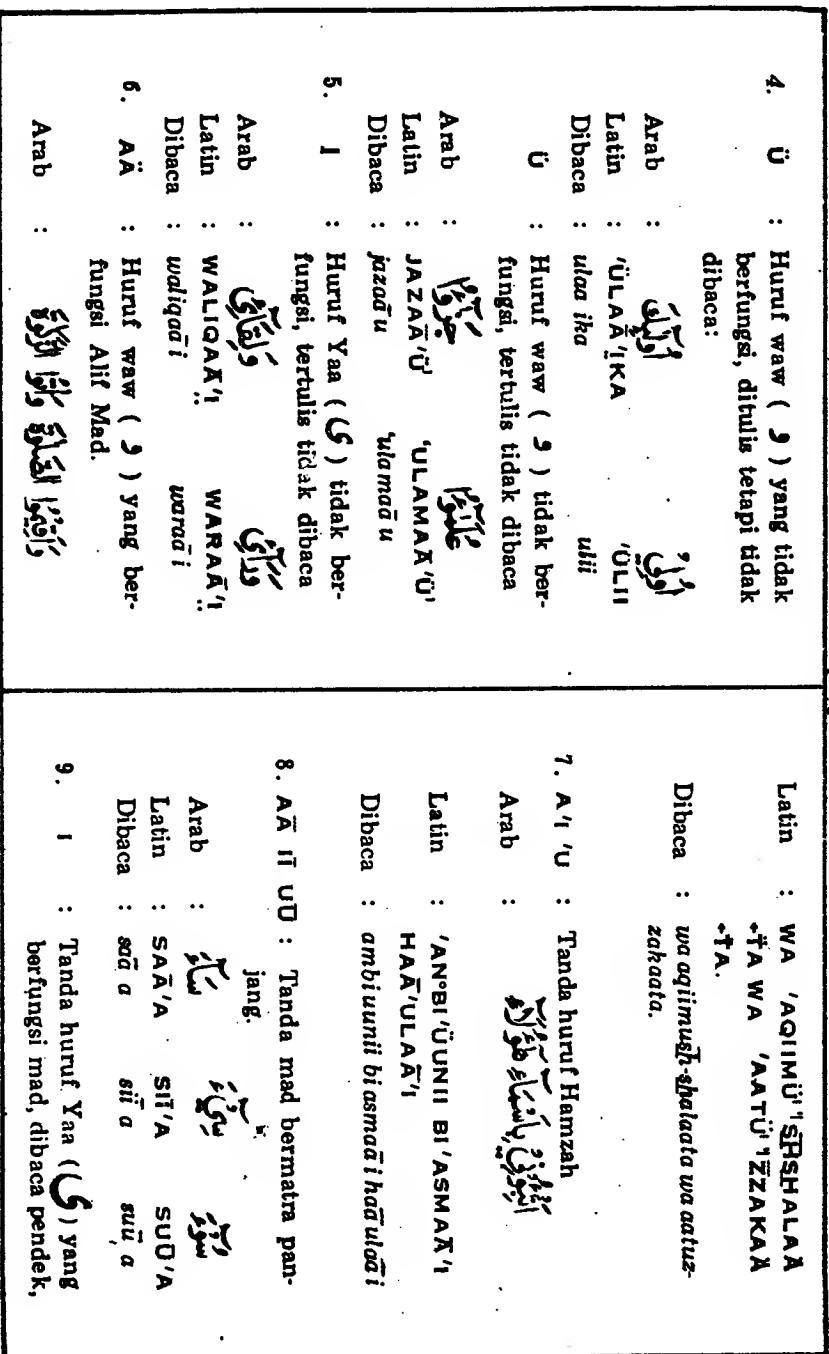 4. Ü : Huruf waw ( و ) yang tidak
berfungsi, ditulis tetapi tidak
dibaca:
Arab : أُولَٰٓئِكَ أُولِي
Latin : 'ÜLAĀ'IKA 'ÜLII
Dibaca : ulaa ika ulii
Ü : Huruf waw ( و ) tidak ber-
fungsi, tertulis tidak dibaca
Arab : جَزَٰٓؤُا عُلَمَٰٓؤُا
Latin : JAZAĀ'Ü' 'ULAMAĀ'Ü'
Dibaca : jazaā u 'ulamaā u
5. I : Huruf Yaa ( ى ) tidak ber-
fungsi, tertulis tidak dibaca
Arab : وَلِقَآئِ وَرَآئِ
Latin : WALIQAĀ'I WARAĀ'I
Dibaca : waliqaā i waraā i
6. AÄ : Huruf waw ( و ) yang ber-
fungsi Alif Mad.
Arab : وَأَقِيمُوا الصَّلٰوةَ وَاٰتُوا الزَّكٰوةَ
Latin : WA 'AQIIMÜ' 'SHSHALAÄ
•T̈A WA 'AATÜ' 'ZZAKAÄ
•T̈A.
Dibaca : wa aqiimush-shalaata wa aatuz-
zakaata.
7. A 'I 'U : Tanda huruf Hamzah
Arab : أَنْبِـُٔونِي بِأَسْمَآءِ هٰٓؤُلَآءِ
Latin : 'AN°BI'ÜUNII BI'ASMAĀ'I
HAĀ'ULAĀ'I
Dibaca : ambiuunii bi asmaā i haā ulaā i
8. AĀ IĪ UŪ : Tanda mad bermatra pan-
jang.
Arab : سَآءَ سِيٓءَ سُوٓءَ
Latin : SAĀ'A SIĪ'A SUŪ'A
Dibaca : saā a siī a suū a
9. I : Tanda huruf Yaa ( ى ) yang
berfungsi mad, dibaca pendek,